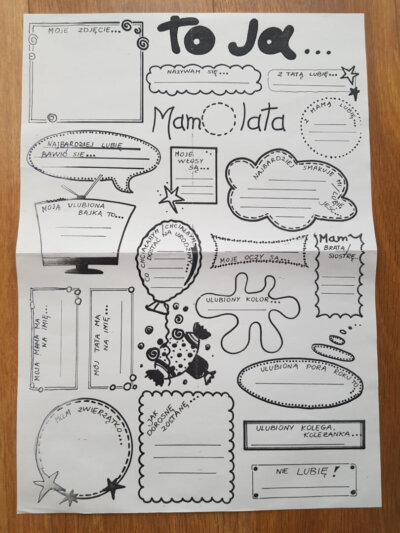 MOJE ZDJĘCIE...
TO JA...
NAZYWAM SIĘ...
Z TATĄ LUBIĘ...
Mam lata
Z MAMĄ LUBIĘ...
NAJBARDZIEJ LUBIĘ
BAWIĆ SIĘ...
MOJE
WŁOSY
SĄ...
NAJBARDZIEJ SMAKUJE MI/
LUBIĘ
JEŚĆ
MOJA ULUBIONA
BAJKA TO...
CO CHCIAŁABYM/CHCIAŁBYM
DOSTAĆ NA URODZINY...
MOJE OCZY SĄ...
Mam
BRATA/
SIOSTRĘ...
MOJA MAMA MA
NA IMIĘ...
MÓJ TATA MA
NA IMIĘ...
ULUBIONY KOLOR...
ULUBIONA PORA ROKU TO...
MAM ZWIERZĄTKO...
JAK
DOROSNĘ
ZOSTANĘ...
ULUBIONY KOLEGA,
KOLEŻANKA...
NIE LUBIĘ!